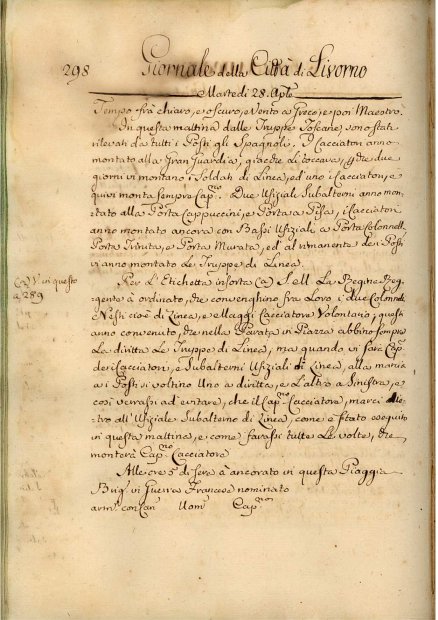 298 Giornale della Città di Livorno
Martedi 28. Aple
Tempo frà chiaro, e oscuro, e Vento a Greco, e poi Maestro.
In questa mattina dalle Truppe Toscane, sono stati
rilevati da tutti i Posti gli Spagnoli. I Cacciatori anno
montato alla Gran Guardia, giacche Li toccava,
giorni vi montano i Soldati di Linea, ed uno i Cacciatori, e
quivi monta sempre Capno Due Ufiziali Subalterni anno mon-
tato alla Porta Cappuccini, e Porta a Pisa, i Cacciatori
anno montato ancora con Bassi Ufiziali a Porta Colonnella
Porta Murata, ed al rimanente de i Posti
vi anno montato Le Truppe di Linea.
Per L'Etichetta insorta (a) S. ell. La Regina Reg-
(a) V. in questo
a 289
gente à ordinato, che convenghino fra Loro i due Colonnelli
Nosti cioè di Linea, e
anno convenuto, che nella Parata in Piazza abbino sempre
La diritta Le Truppe di Linea, ma quando vi sarà Capno
dei Cacciatori, e Subalterni Ufiziali di Linea, alla
a i Posti si voltino Uno a diritta, e L'altro a Sinistra, e
così verrassi ad evitare, che il Capno Cacciatore, marci die-
tro all'Ufiziale Subalterno di Linea, come è stato eseguito
in questa mattina, e come farassi tutte Le volte, che
monterà Capno Cacciatore
Alle ore 5. di sera à ancorato in questa Piaggia
Brigno in Guerra Francese nominato
armto con Can Uomi Capno